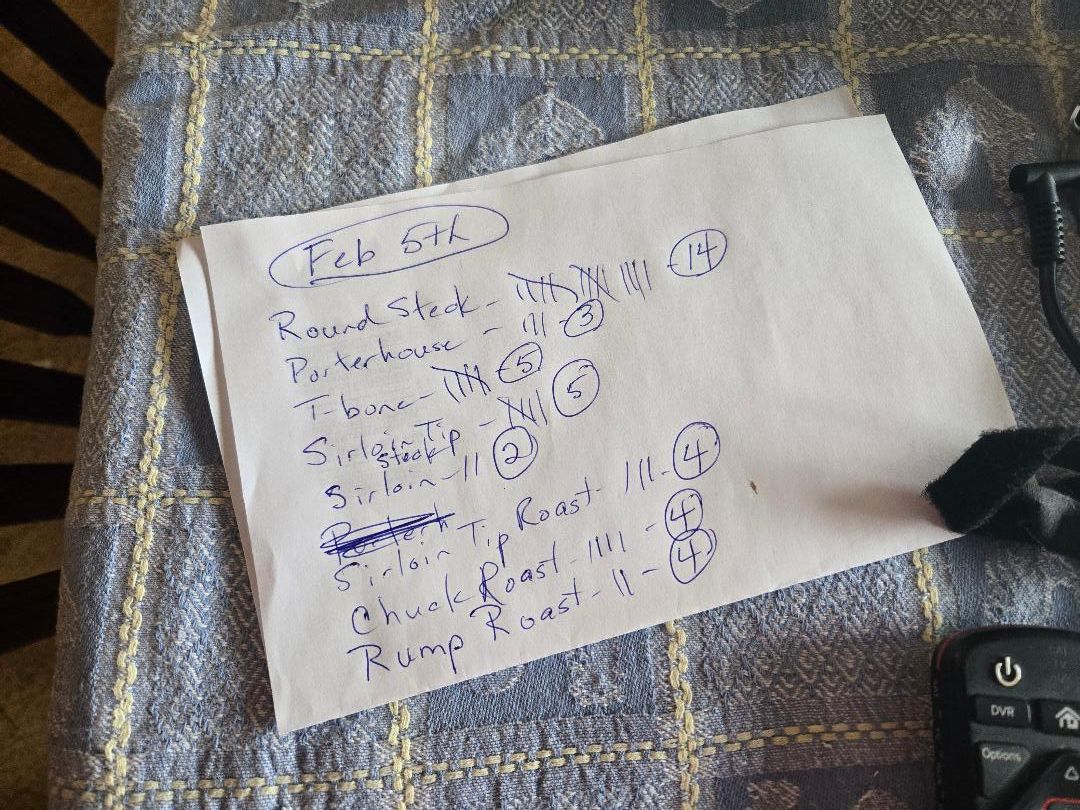 Feb 5th
Round Steak - |||| |||| |||| - 14
Porterhouse - ||| - 3
T-bone - |||| - 5
Sirloin Tip - |||| 5
steak
Sirloin - || 2
Sirloin Tip Roast - ||| - 4
Chuck Roast - |||| - 4
Rump Roast - || - 4
DVR
Options